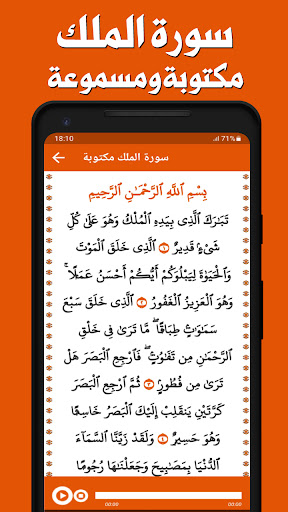 سورة الملك
مكتوبة ومسموعة
18:10
71%
سورة الملك مكتوبة
بِسْمِ ٱللَّهِ ٱلرَّحْمَٰنِ ٱلرَّحِيمِ
تَبَٰرَكَ ٱلَّذِى بِيَدِهِ ٱلْمُلْكُ وَهُوَ عَلَىٰ كُلِّ
شَىْءٍ قَدِيرٌ ١ ٱلَّذِى خَلَقَ ٱلْمَوْتَ
وَٱلْحَيَوٰةَ لِيَبْلُوَكُمْ أَيُّكُمْ أَحْسَنُ عَمَلًا ۚ
وَهُوَ ٱلْعَزِيزُ ٱلْغَفُورُ ٢ ٱلَّذِى خَلَقَ سَبْعَ
سَمَٰوَٰتٍ طِبَاقًا ۖ مَّا تَرَىٰ فِى خَلْقِ
ٱلرَّحْمَٰنِ مِن تَفَٰوُتٍ ۖ فَٱرْجِعِ ٱلْبَصَرَ هَلْ
تَرَىٰ مِن فُطُورٍ ٣ ثُمَّ ٱرْجِعِ ٱلْبَصَرَ
كَرَّتَيْنِ يَنقَلِبْ إِلَيْكَ ٱلْبَصَرُ خَاسِئًا
وَهُوَ حَسِيرٌ ٤ وَلَقَدْ زَيَّنَّا ٱلسَّمَآءَ
ٱلدُّنْيَا بِمَصَٰبِيحَ وَجَعَلْنَٰهَا رُجُومًا
00:00 00:00